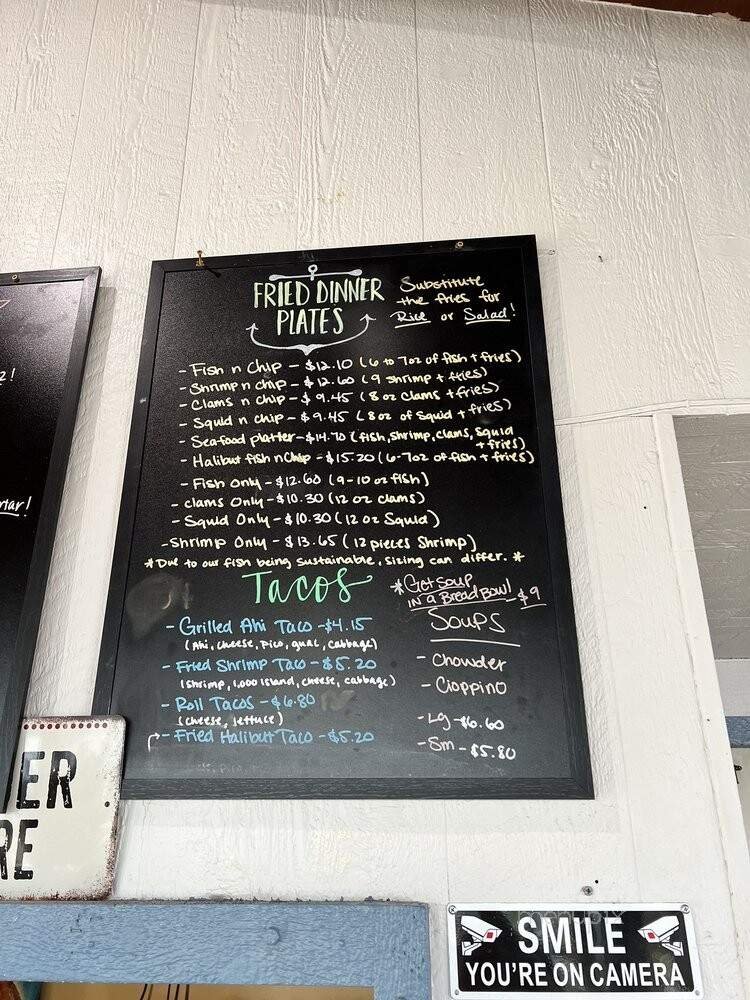 z!
rtar!
FRIED DINNER
PLATES
Substitute
the fries for
Rice or Salad!
- Fish n Chip - $12.10 (6 to 7oz of fish + fries)
- Shrimp n chip - $12.60 (9 shrimp + fries)
- Clams n chip - $9.45 (8 oz clams + fries)
- Squid n chip - $9.45 (8 oz of squid + fries)
- Seafood platter - $14.70 (fish, shrimp, clams, squid
+ fries)
- Halibut fish n Chip - $15.20 (6-7oz of fish + fries)
- Fish Only - $12.60 (9-10 oz fish)
- clams Only - $10.30 (12 oz clams)
- Squid Only - $10.30 (12 oz Squid)
- Shrimp Only - $13.65 (12 pieces Shrimp)
*Due to our fish being sustainable, sizing can differ.*
Tacos
- Grilled Ahi Taco - $4.15
(Ahi, cheese, pico, guac, cabbage)
- Fried Shrimp Taco - $5.20
(shrimp, 1,000 island, cheese, cabbage)
- Roll Tacos - $6.80
(cheese, lettuce)
- Fried Halibut Taco - $5.20
*Get Soup
IN a Bread Bowl - $9
Soups
- Chowder
- Cioppino
- Lg - $6.60
- Sm - $5.80
ER
RE
SMILE
YOU'RE ON CAMERA